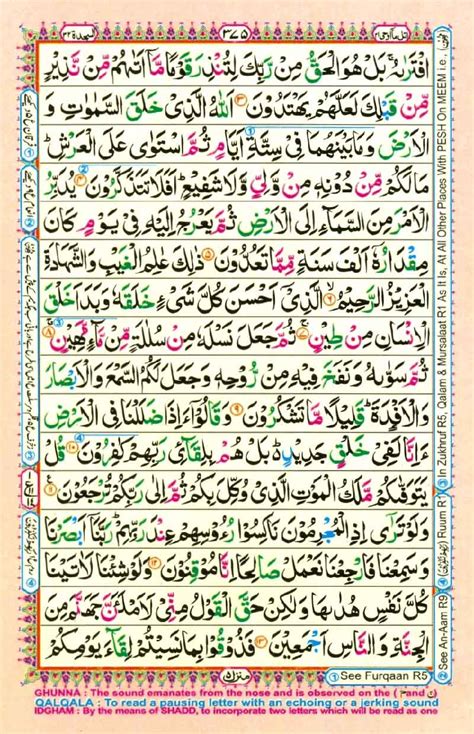 السجدة ٣٢ ٣٧٥ اتل ما اوحی ٢١
افْتَرٰىهُ ۚ بَلْ هُوَ الْحَقُّ مِنْ رَّبِّكَ لِتُنْذِرَ قَوْمًا مَّاۤ اَتٰىهُمْ مِّنْ نَّذِيْرٍ
مِّنْ قَبْلِكَ لَعَلَّهُمْ يَهْتَدُوْنَ ٣ اَللّٰهُ الَّذِيْ خَلَقَ السَّمٰوٰتِ وَ
الْاَرْضَ وَمَا بَيْنَهُمَا فِيْ سِتَّةِ اَيَّامٍ ثُمَّ اسْتَوٰى عَلَى الْعَرْشِ ؕ
مَا لَكُمْ مِّنْ دُوْنِهٖ مِنْ وَّلِيٍّ وَّلَا شَفِيْعٍ ؕ اَفَلَا تَتَذَكَّرُوْنَ ٤ يُدَبِّرُ
الْاَمْرَ مِنَ السَّمَآءِ اِلَى الْاَرْضِ ثُمَّ يَعْرُجُ اِلَيْهِ فِيْ يَوْمٍ كَانَ
مِقْدَارُهٗۤ اَلْفَ سَنَةٍ مِّمَّا تَعُدُّوْنَ ٥ ذٰلِكَ عٰلِمُ الْغَيْبِ وَالشَّهَادَةِ
الْعَزِيْزُ الرَّحِيْمُ ٦ الَّذِيْۤ اَحْسَنَ كُلَّ شَيْءٍ خَلَقَهٗ وَبَدَاَ خَلْقَ
الْاِنْسَانِ مِنْ طِيْنٍ ٧ ثُمَّ جَعَلَ نَسْلَهٗ مِنْ سُلٰلَةٍ مِّنْ مَّآءٍ مَّهِيْنٍ ٨
ثُمَّ سَوّٰىهُ وَنَفَخَ فِيْهِ مِنْ رُّوْحِهٖ وَجَعَلَ لَكُمُ السَّمْعَ وَالْاَبْصَارَ
وَالْاَفْـِٕدَةَ ؕ قَلِيْلًا مَّا تَشْكُرُوْنَ ٩ وَقَالُوْۤا ءَاِذَا ضَلَلْنَا فِي الْاَرْضِ
ءَاِنَّا لَفِيْ خَلْقٍ جَدِيْدٍ ؕ بَلْ هُمْ بِلِقَآئِ رَبِّهِمْ كٰفِرُوْنَ ١٠ قُلْ
يَتَوَفّٰىكُمْ مَّلَكُ الْمَوْتِ الَّذِيْ وُكِّلَ بِكُمْ ثُمَّ اِلٰى رَبِّكُمْ تُرْجَعُوْنَ ١١
وَلَوْ تَرٰۤى اِذِ الْمُجْرِمُوْنَ نَاكِسُوْا رُءُوْسِهِمْ عِنْدَ رَبِّهِمْ ؕ رَبَّنَاۤ اَبْصَرْنَا
وَسَمِعْنَا فَارْجِعْنَا نَعْمَلْ صَالِحًا اِنَّا مُوْقِنُوْنَ ١٢ وَلَوْ شِئْنَا لَاٰتَيْنَا
كُلَّ نَفْسٍ هُدٰىهَا وَلٰكِنْ حَقَّ الْقَوْلُ مِنِّيْ لَاَمْلَـَٔنَّ جَهَنَّمَ مِنَ
الْجِنَّةِ وَ النَّاسِ اَجْمَعِيْنَ ١٣ فَذُوْقُوْا بِمَا نَسِيْتُمْ لِقَآءَ يَوْمِكُمْ
② See An-Aam R9 Ruum R1 ③ In Zukhruf R5, Qalam & Mursalaat R1 As It Is, At All Other Places With PESH On MEEM i.e.,
منزل ٥
① See Furqaan R5
GHUNNA : The sound emanates from the nose and is observed on the ( م and ن )
QALQALA : To read a pausing letter with an echoing or a jerking sound
IDGHAM : By the means of SHADD, to incorporate two letters which will be read as one